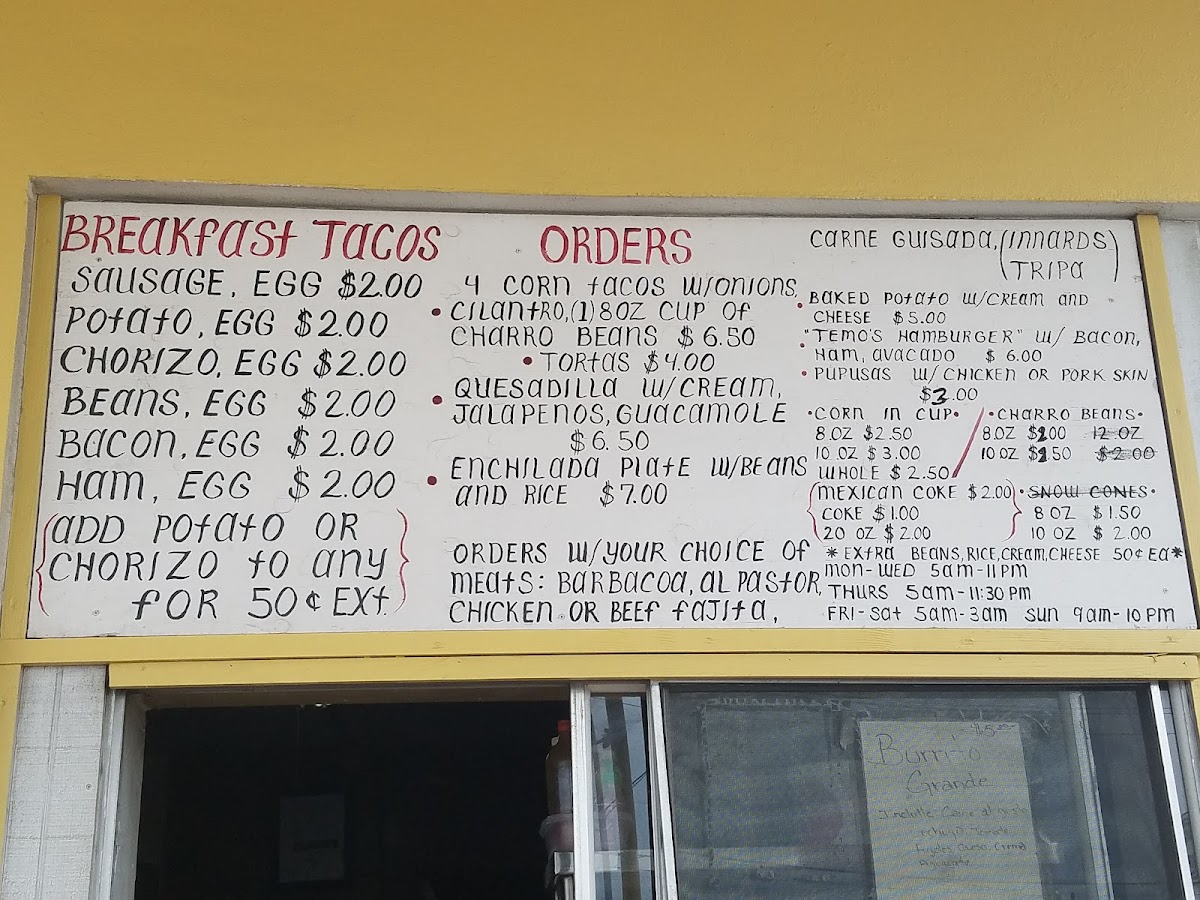 BREAKFAST TACOS
SAUSAGE, EGG $2.00
POTATO, EGG $2.00
CHORIZO, EGG $2.00
BEANS, EGG $2.00
BACON, EGG $2.00
HAM, EGG $2.00
(ADD POTATO OR
CHORIZO TO ANY
FOR 50¢ EXT.)
ORDERS
4 CORN TACOS W/ONIONS,
• CILANTRO,(1) 8OZ CUP OF
CHARRO BEANS $6.50
• TORTAS $4.00
• QUESADILLA W/CREAM,
JALAPENOS, GUACAMOLE
$6.50
• ENCHILADA PLATE W/BEANS
AND RICE $7.00
ORDERS W/YOUR CHOICE OF
MEATS: BARBACOA, AL PASTOR,
CHICKEN OR BEEF FAJITA,
CARNE GUISADA, (INNARDS)
TRIPA
• BAKED POTATO W/CREAM AND
CHEESE $5.00
• "TEMO'S HAMBURGER" W/ BACON,
HAM, AVACADO $6.00
• PUPUSAS W/ CHICKEN OR PORK SKIN
$3.00
• CORN IN CUP •
8 OZ $2.50
10 OZ $3.00
WHOLE $2.50
• CHARRO BEANS •
8 OZ $2.00 12 OZ
10 OZ $2.50 $2.00
(MEXICAN COKE $2.00)
COKE $1.00
20 OZ $2.00
• SNOW CONES •
8 OZ $1.50
10 OZ $2.00
* EXTRA BEANS, RICE, CREAM, CHEESE 50¢ EA *
MON-WED 5AM-11PM
THURS 5AM-11:30PM
FRI-SAT 5AM-3AM SUN 9AM-10PM
Burrito
Grande